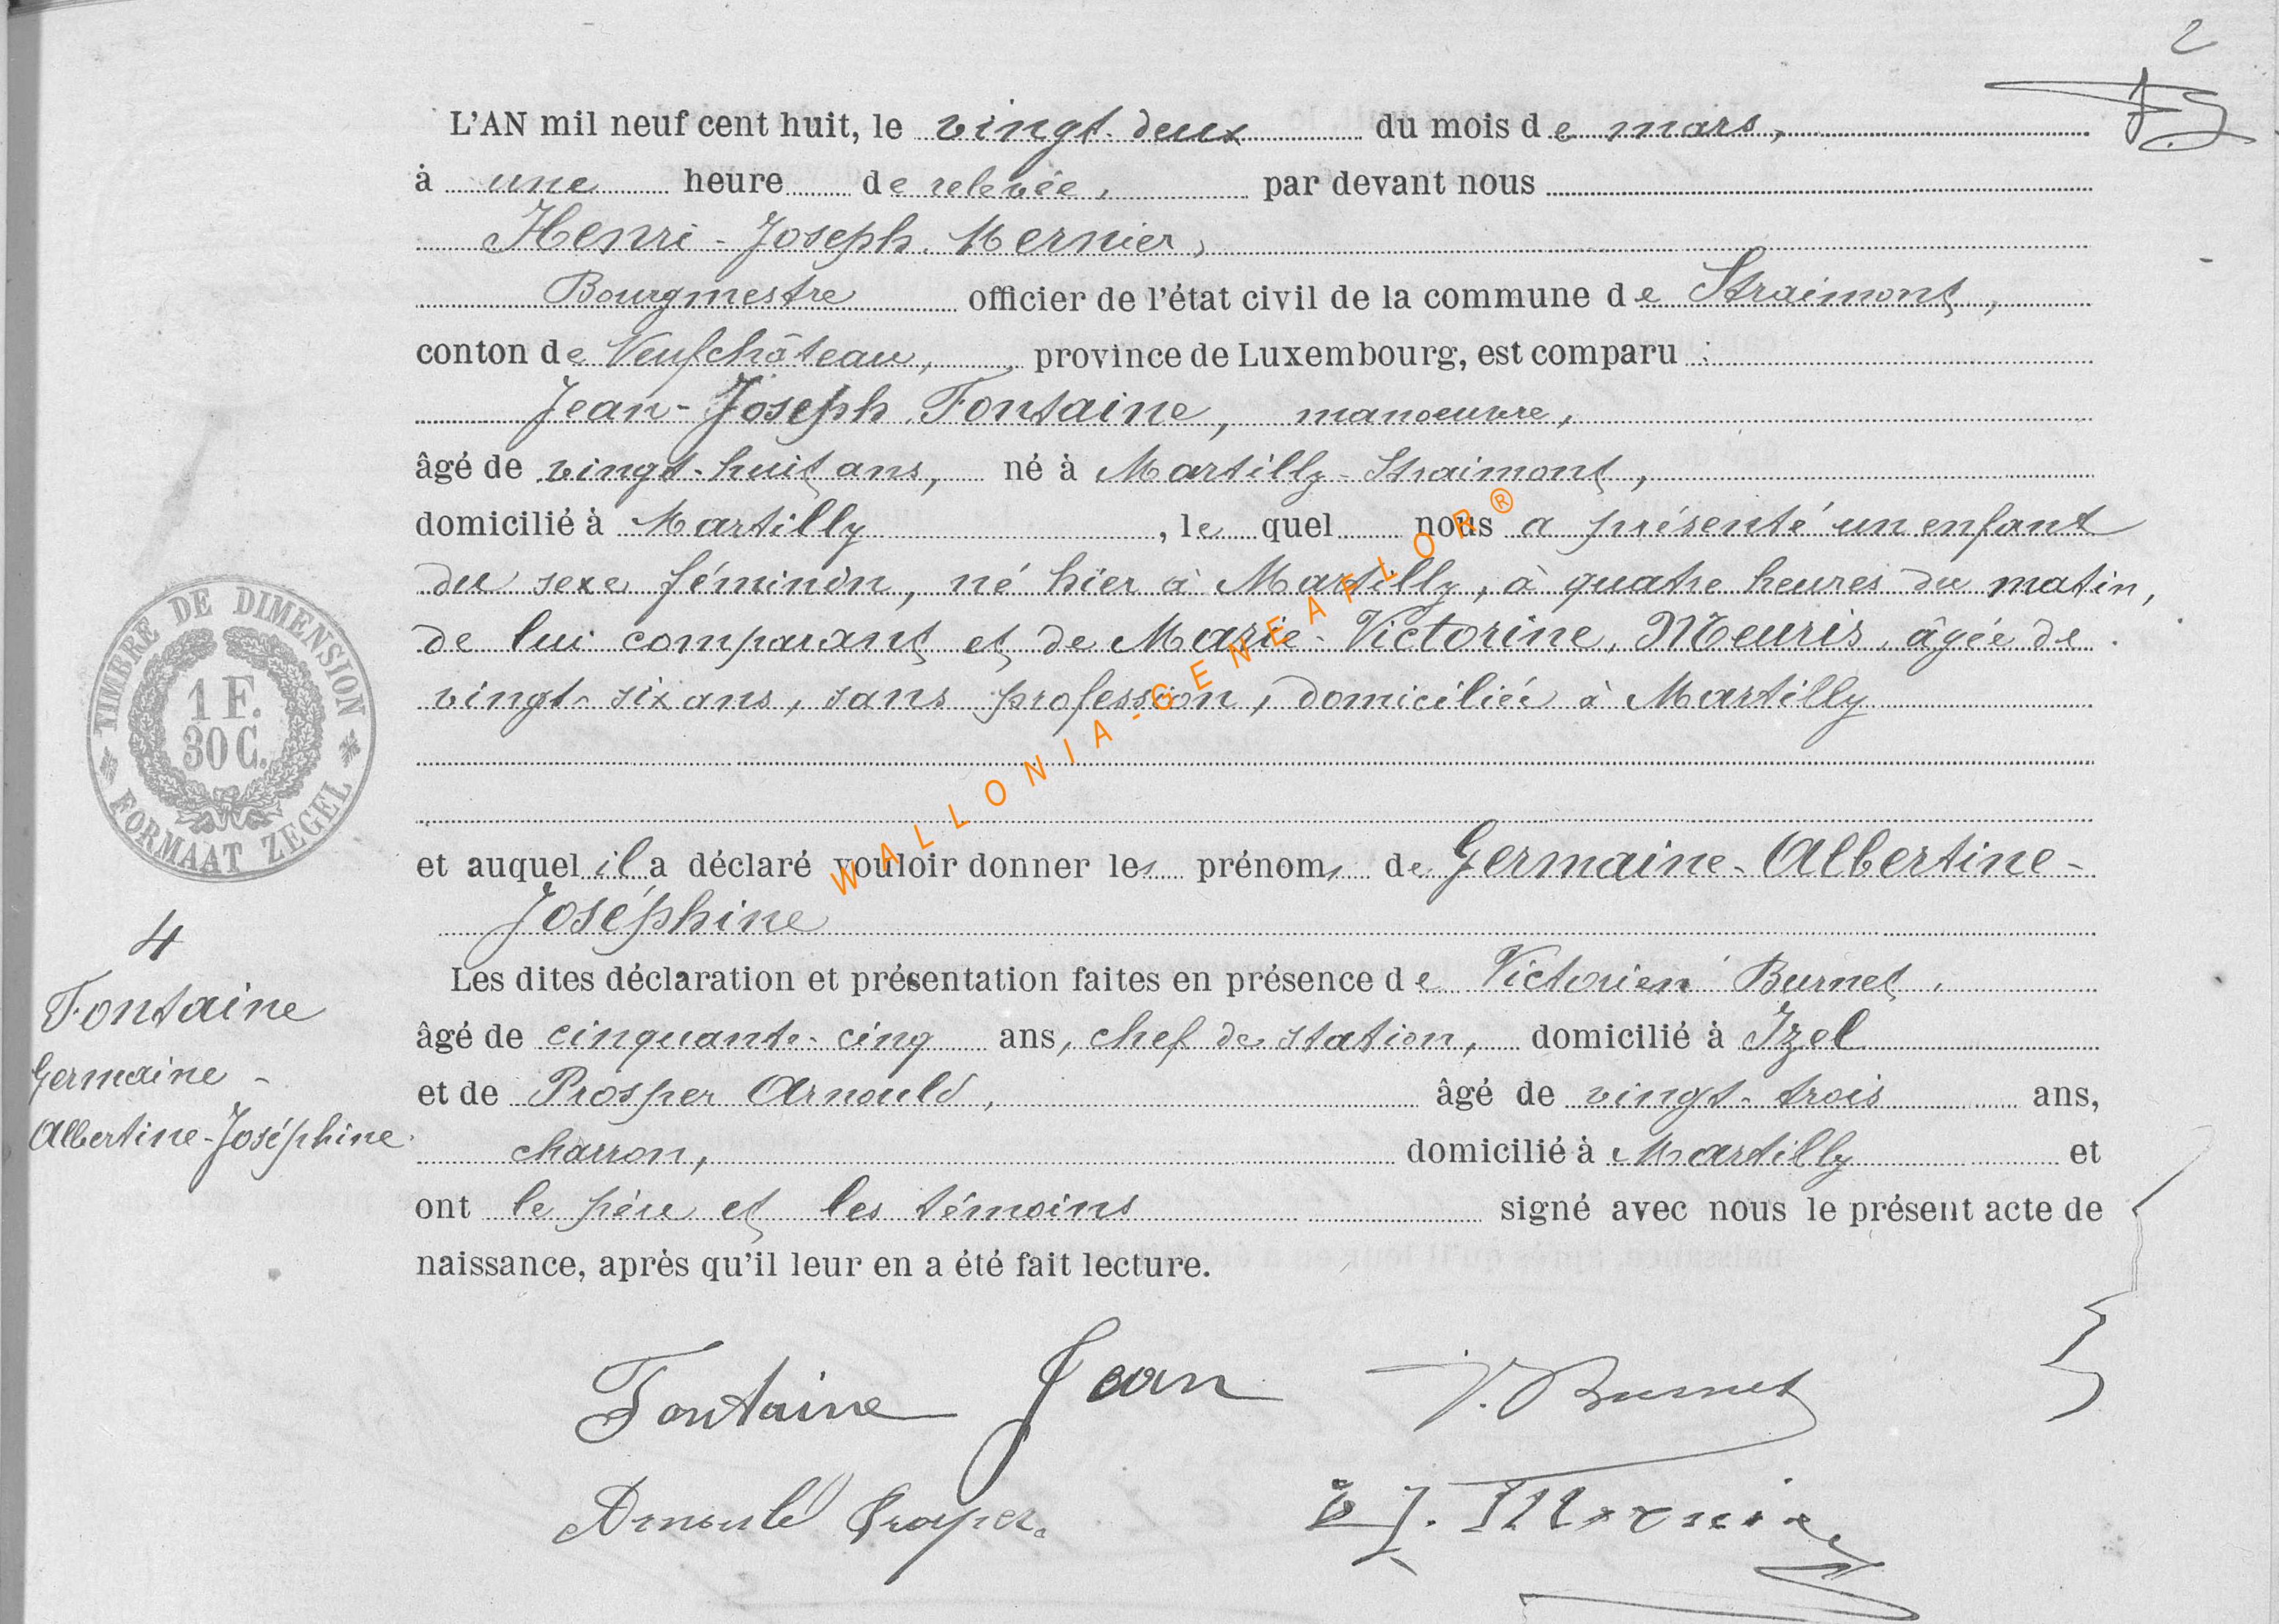 2
L'AN mil neuf cent huit, le vingt-deux du mois de mars,
à une heure de relevée, par devant nous
Henri-Joseph Mernier,
Bourgmestre officier de l'état civil de la commune de Straimont,
conton de Neufchâteau, province de Luxembourg, est comparu :
Jean-Joseph Fontaine, manoeuvre,
âgé de vingt-huit ans, né à Martilly-Straimont,
domicilié à Martilly, le quel nous a présenté un enfant
du sexe féminin, né hier à Martilly, à quatre heures du matin,
de lui comparant et de Marie-Victorine Meuris, âgée de
vingt-six ans, sans profession, domiciliée à Martilly
et auquel il a déclaré vouloir donner les prénoms de Germaine-Albertine-
Joséphine
Les dites déclaration et présentation faites en présence de Victorien Burnet,
âgé de cinquante-cinq ans, chef de station, domicilié à Izel
et de Prosper Arnould, âgé de vingt-trois ans,
charron, domicilié à Martilly et
ont le père et les témoins signé avec nous le présent acte de
naissance, après qu'il leur en a été fait lecture.
TIMBRE DE DIMENSION
1 F.
30 C.
FORMAAT ZEGEL
4
Fontaine
Germaine-
Albertine-Joséphine
Fontaine Jean V. Burnet
Arnould Prosper H J. Mernier
WALLONIA-GENEAFLOR®